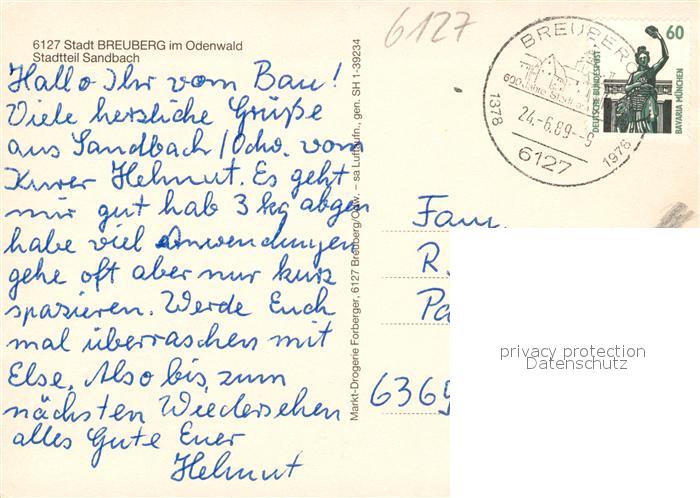 6127 Stadt BREUBERG im Odenwald
Stadtteil Sandbach
6127
Hallo Ihr vom Bau!
Viele herzliche Grüße
aus Sandbach/Odw. vom
Kurer Helmut. Es geht
mir gut hab 3 kg abgen
habe viel Anwendungen
gehe oft aber nur kurz
spazieren. Werde Euch
mal überraschen mit
Else. Also bis zum
nächsten Wiedersehen
alles Gute Euer
Helmut
Markt-Drogerie Forberger, 6127 Breuberg/Odw. – sa Luftaufn., gen. SH 1-39234
BREUBERG
600 Jahre Stadt
1378
24.-6.89--9
1978
6127
60
DEUTSCHE BUNDESPOST
BAVARIA MÜNCHEN
Fam.
R.
Pa
6369
privacy protection
Datenschutz